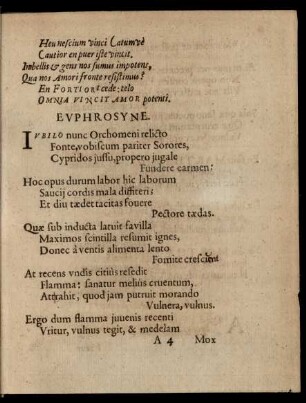 Heu nescium vinci Catumvè
Cautior en puer iste vincit.
Imbellis & gens nos sumus impotens,
Qua nos Amori fronte resistimus?
En FORTIORI cede: telo
OMNIA VINCIT AMOR potenti.
EVPHROSYNE.
IVBILO nunc Orchomeni relicto
Fonte, vobiscum pariter Sorores,
Cypridos jussu, propero jugale
Fundere carmen.
Hoc opus durum labor hic laborum
Saucij cordis mala diffiteri:
Et diu tædet tacitas fovere
Pectore tædas.
Quæ sub inducta latuit favilla
Maximos scintilla resumit ignes,
Donec à ventis alimenta lento
Fomite crescunt.
At recens undis citiùs resedit
Flamma: sanatur meliùs cruentum,
Attrahit, quod jam putruit morando
Vulnera, vulnus.
Ergo dum flamma juuenis recenti
Vritur, vulnus tegit, & medelam
A 4 Mox